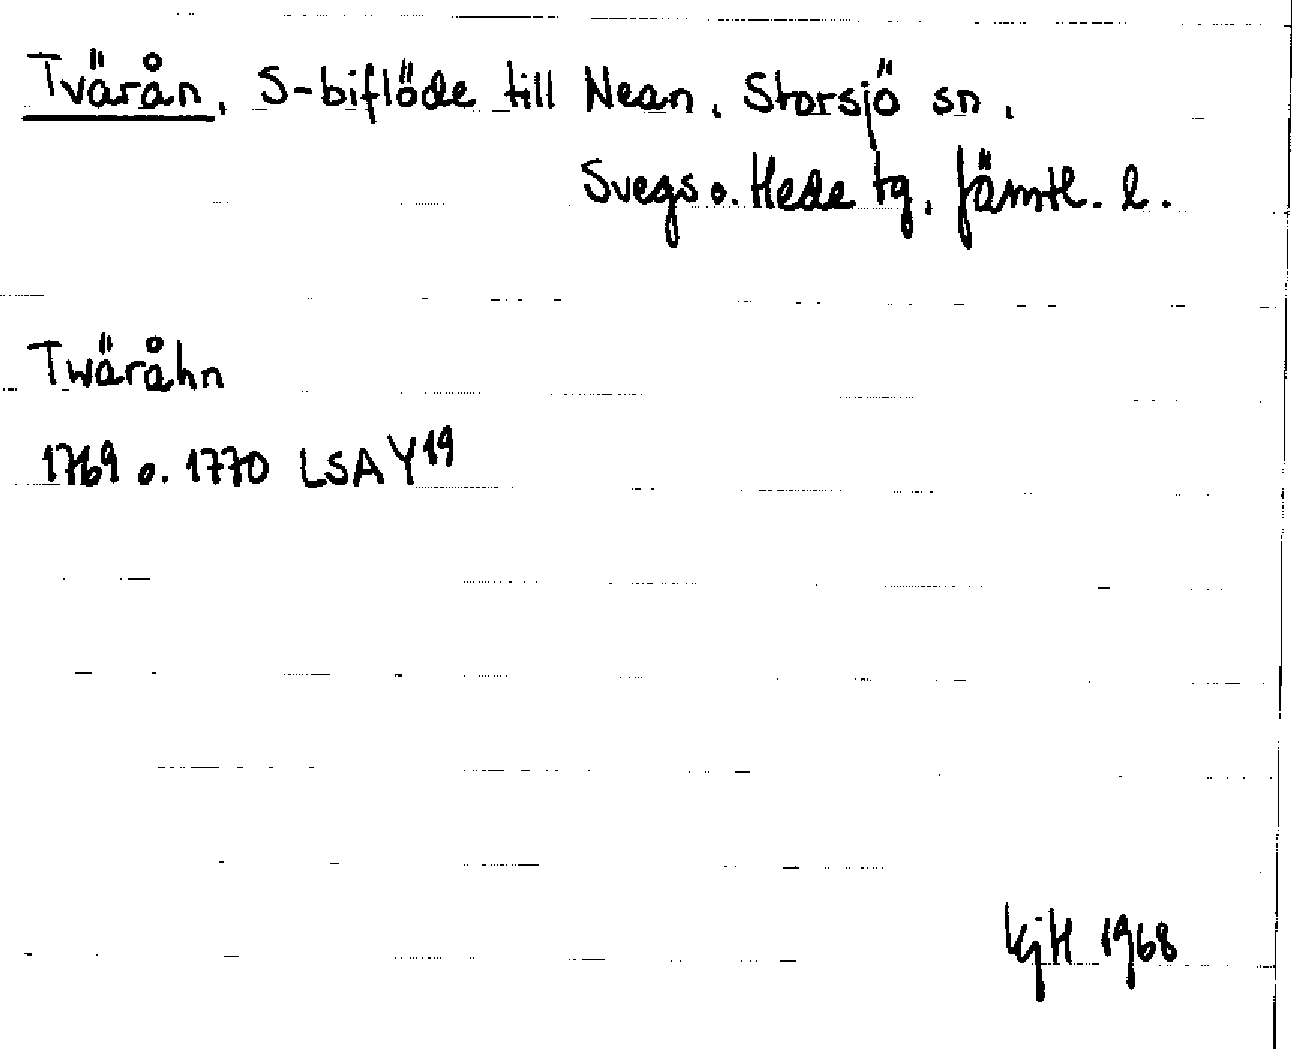 Tvärån, S-biflöde till Nean, Storsjö sn,
Svegs o. Hede tg, Jämtl. l.
Twäråhn
1769 o. 1770 LSA Y19
KjH 1968